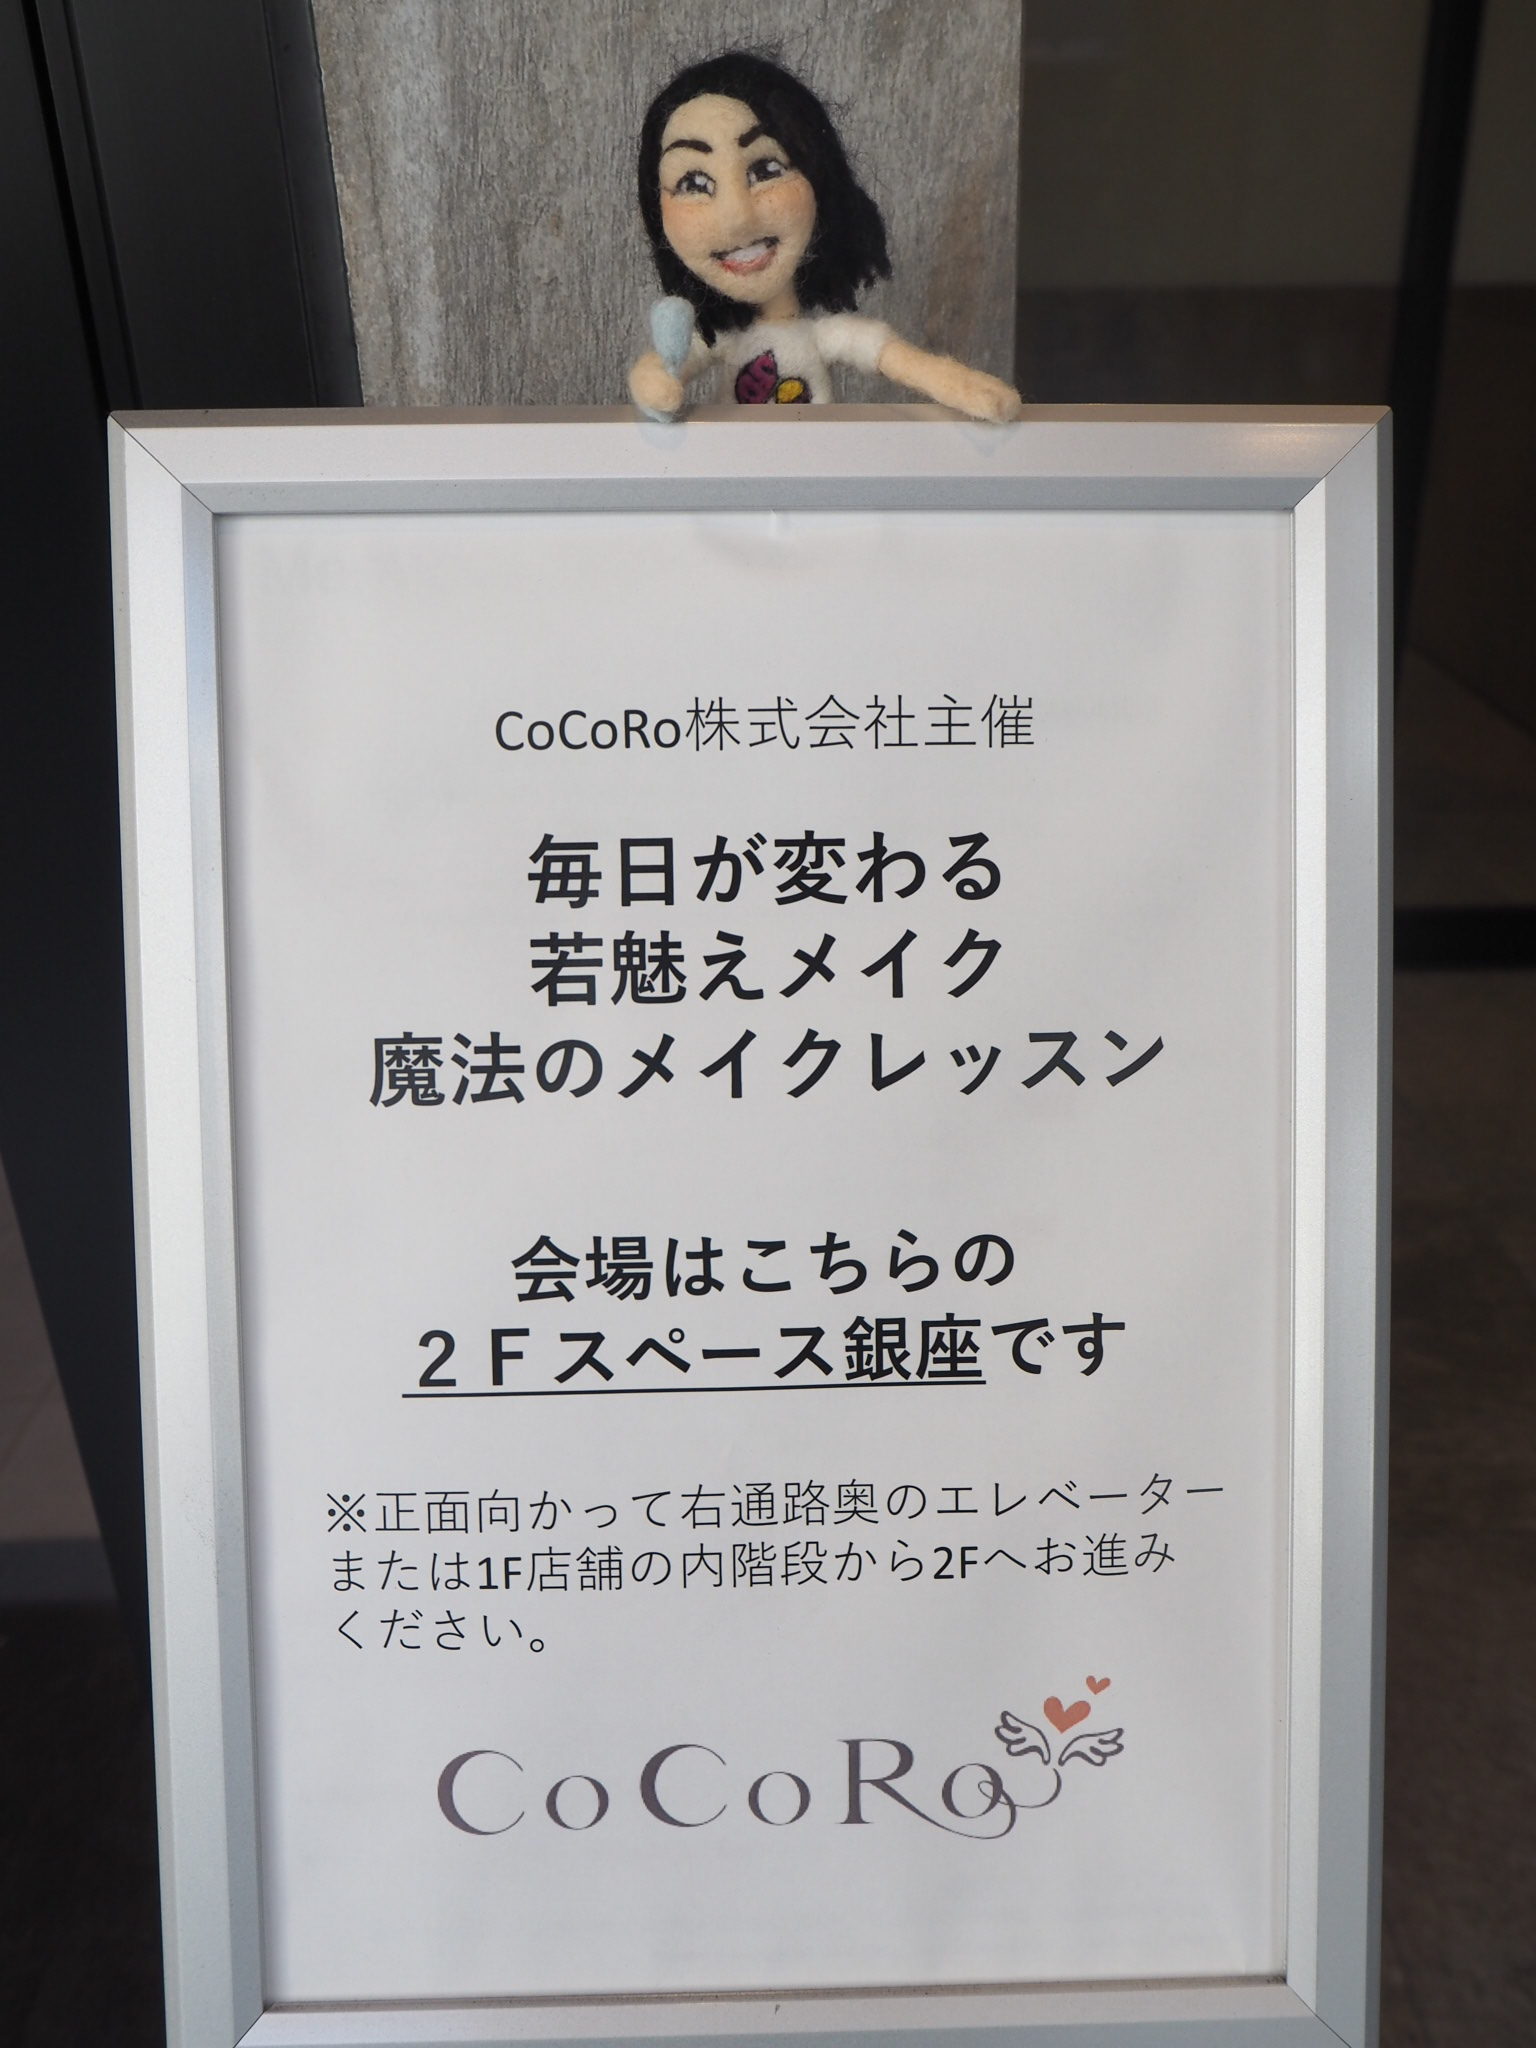 CoCoRo株式会社主催
毎日が変わる
若魅えメイク
魔法のメイクレッスン
会場はこちらの
２Ｆスペース銀座です
※正面向かって右通路奥のエレベーター
または1F店舗の内階段から2Fへお進み
ください。
CoCoRo